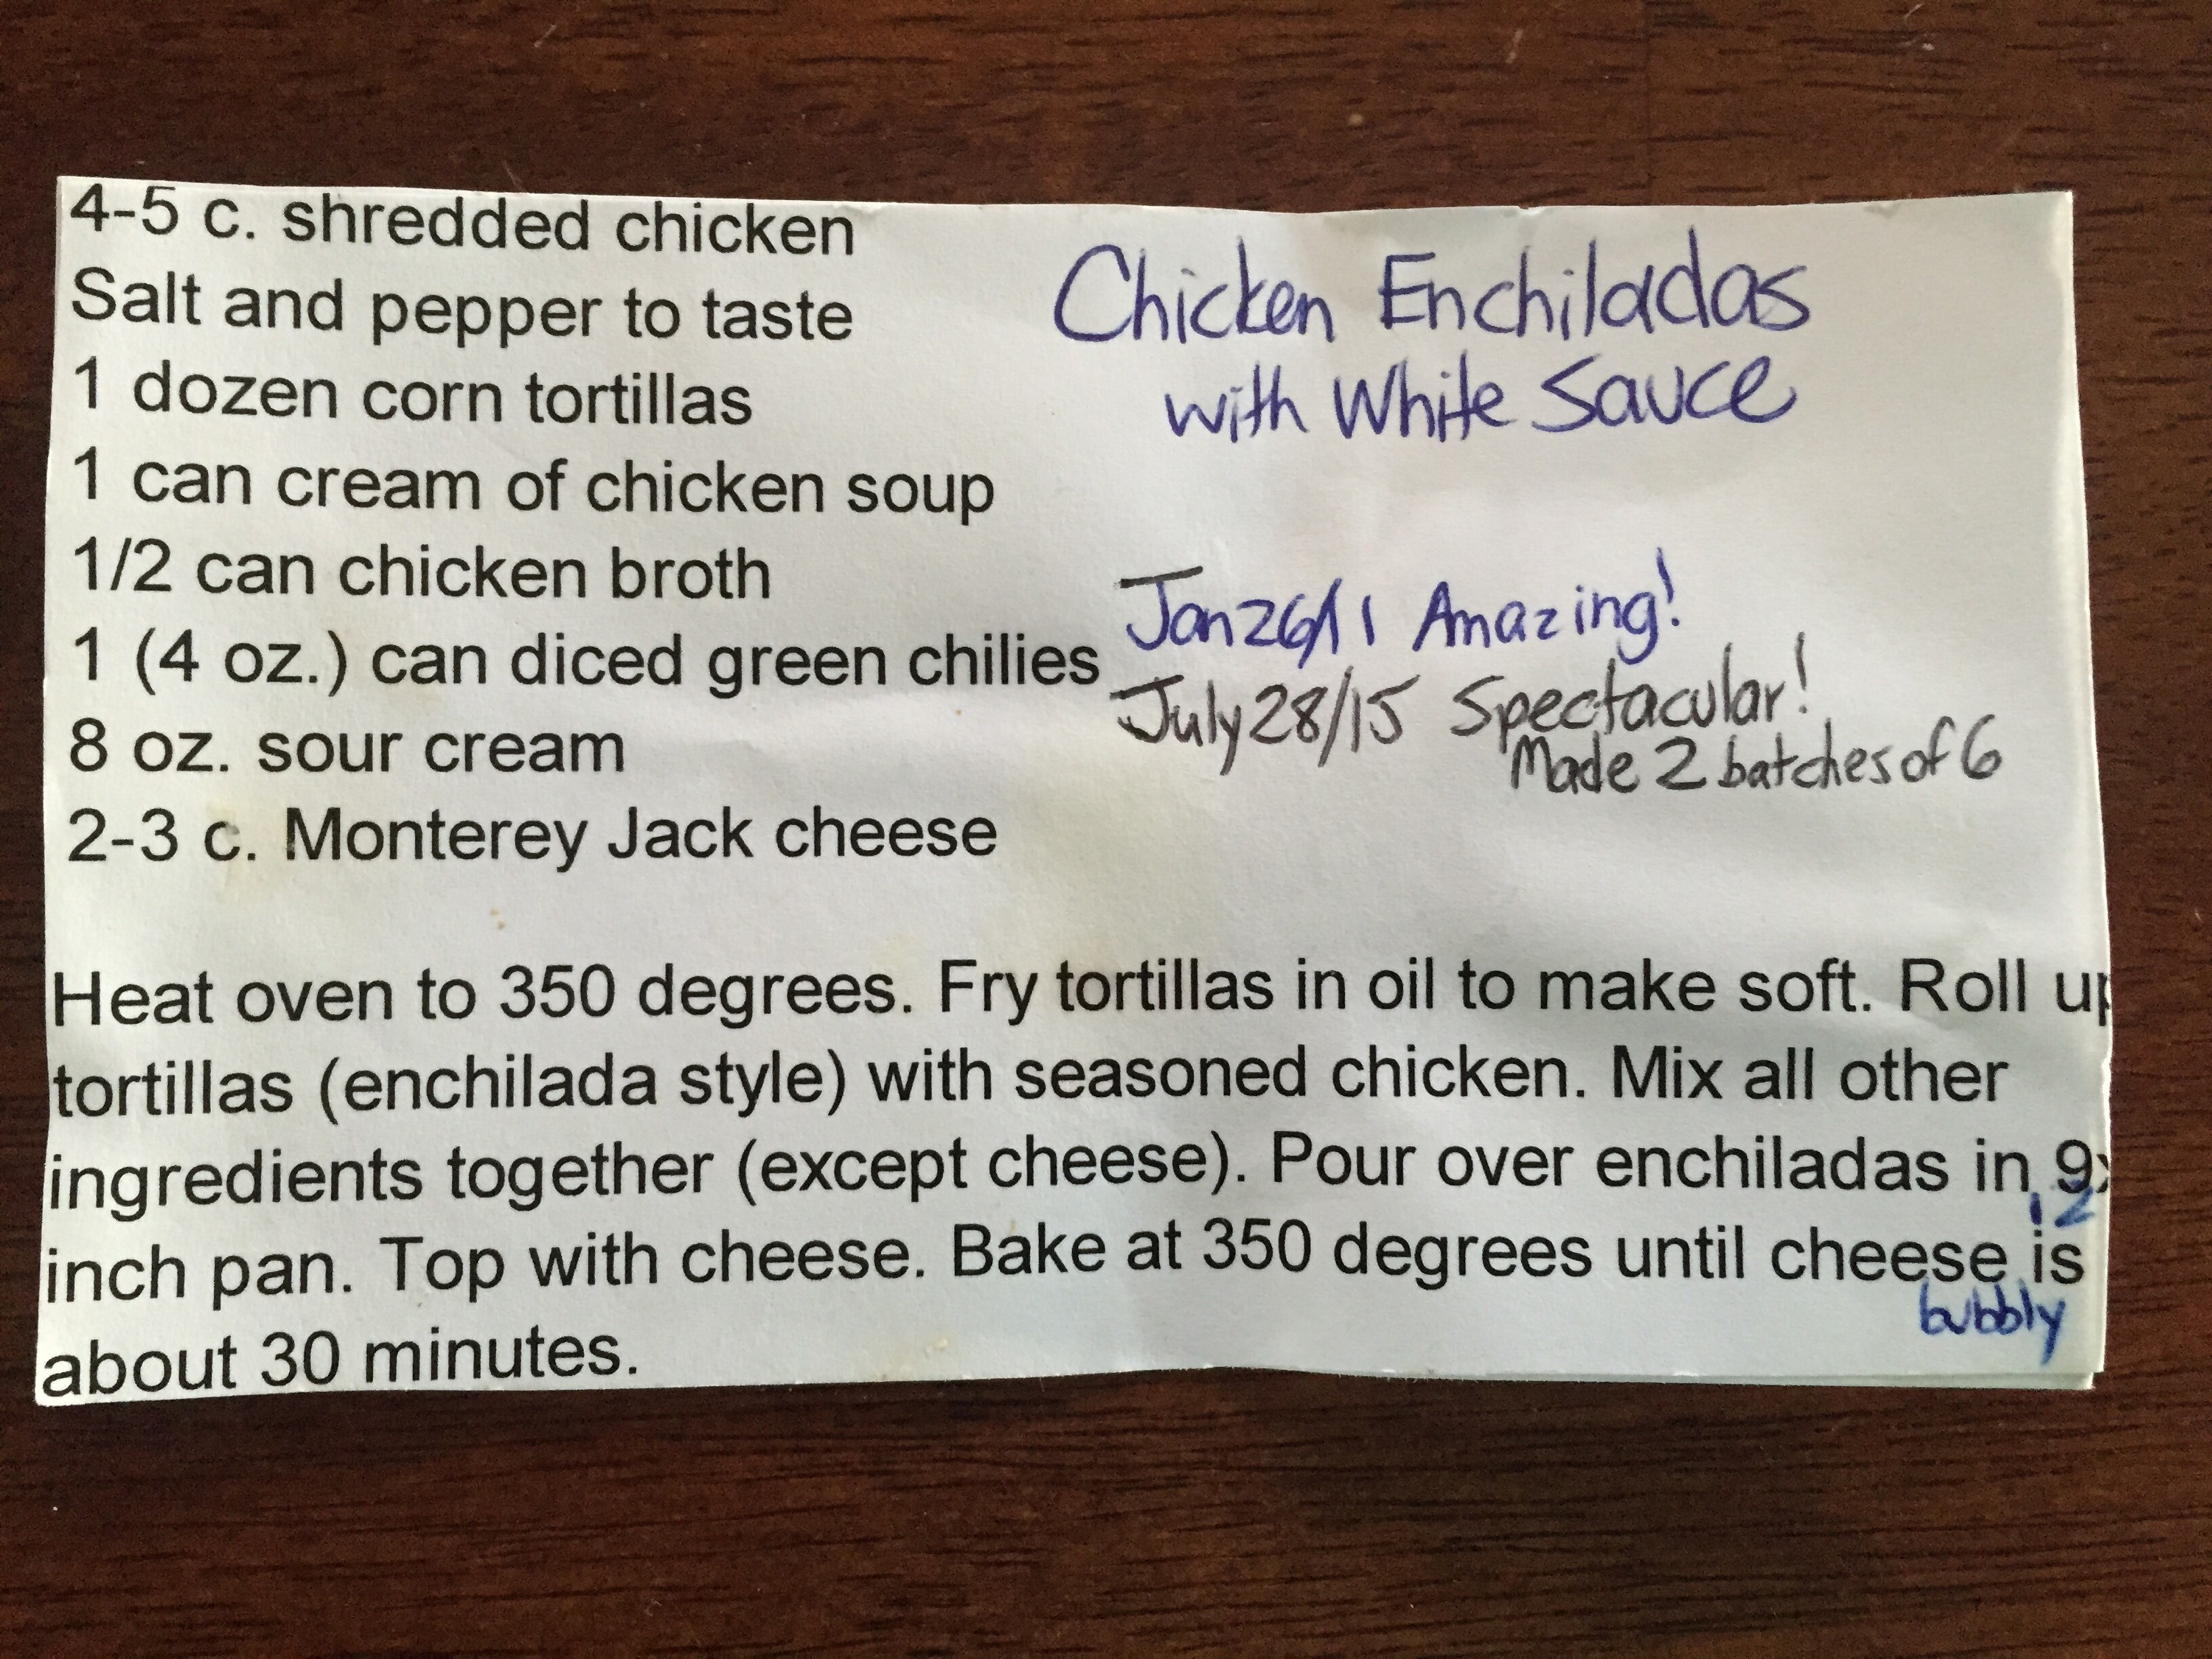 4-5 c. shredded chicken
Salt and pepper to taste
1 dozen corn tortillas
1 can cream of chicken soup
1/2 can chicken broth
1 (4 oz.) can diced green chilies
8 oz. sour cream
2-3 c. Monterey Jack cheese
Chicken Enchiladas
with White Sauce
Jan 26/11 Amazing!
July 28/15 Spectacular!
Made 2 batches of 6
Heat oven to 350 degrees. Fry tortillas in oil to make soft. Roll up
tortillas (enchilada style) with seasoned chicken. Mix all other
ingredients together (except cheese). Pour over enchiladas in 9x
12
inch pan. Top with cheese. Bake at 350 degrees until cheese is
bubbly
about 30 minutes.